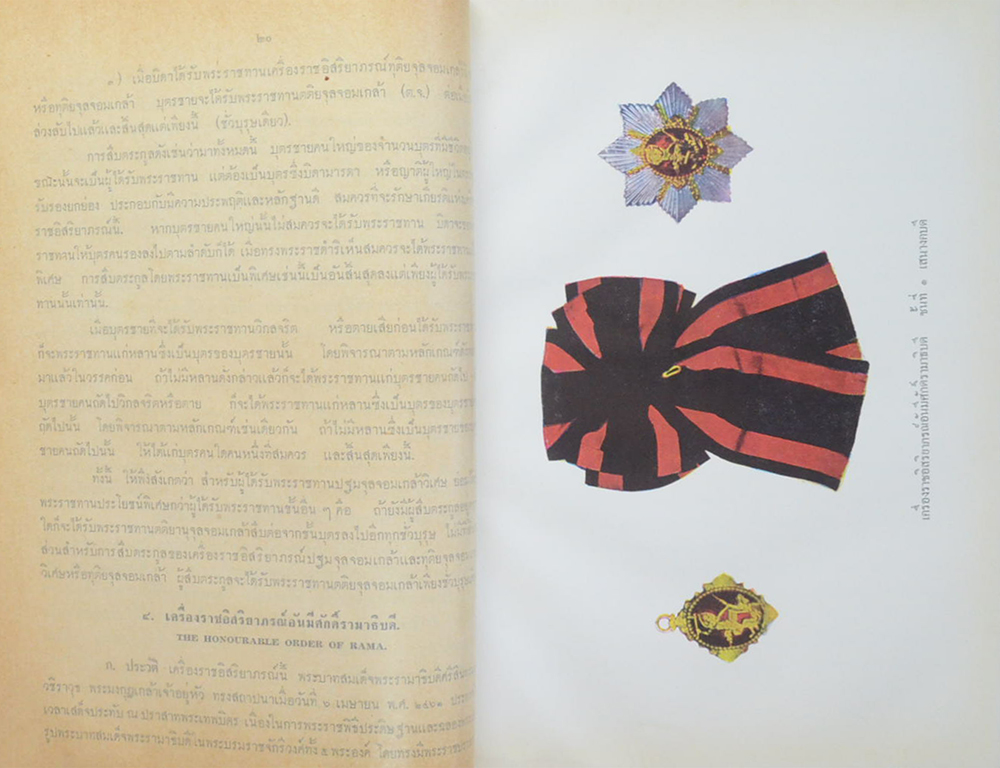 ๒๐
๑) เมื่อบิดาได้รับพระราชทานเครื่องราชอิสริยาภรณ์ทุติยจุลจอมเกล้า
หรือทุติยจุลจอมเกล้า บุตรชายจะได้รับพระราชทานตติยจุลจอมเกล้า (ต.จ.) ต่อเมื่อ
ล่วงลับไปแล้วและสิ้นสุดแค่เพียงนี้ (ชั่วบุรุษเดียว).
การสืบตระกูลดังเช่นว่ามาทั้งหมดนี้ บุตรชายคนใหญ่ของจำนวนบุตรที่มีชีวิต
ขณะนั้นจะเป็นผู้ได้รับพระราชทาน แต่ต้องเป็นบุตรซึ่งบิดามารดา หรือญาติผู้ใหญ่ใน
รับรองยกย่อง ประกอบกับมีความประพฤติและหลักฐานดี สมควรที่จะรักษาเกียรติแห่ง
ราชอิสริยาภรณ์นี้. หากบุตรชายคนใหญ่นั้นไม่สมควรจะได้รับพระราชทาน บิดาจะขอ
ราชทานให้บุตรคนรองลงไปตามลำดับก็ได้ เมื่อทรงพระราชดำริเห็นสมควรจะได้พระราชทาน
พิเศษ การสืบตระกูลโดยพระราชทานเป็นพิเศษเช่นนี้เป็นอันสิ้นสุดลงแต่เพียงผู้ได้รับพระ
ทานนั้นเท่านั้น.
เมื่อบุตรชายที่จะได้รับพระราชทานวิกลจริต หรือตายเสียก่อนได้รับพระราช
ก็จะพระราชทานแก่หลานซึ่งเป็นบุตรของบุตรชายนั้น โดยพิจารณาตามหลักเกณฑ์
มาแล้วในวรรคก่อน ถ้าไม่มีหลานดังกล่าวแล้วก็จะได้พระราชทานแก่บุตรชายคนถัดไป
บุตรชายคนถัดไปวิกลจริตหรือตาย ก็จะได้พระราชทานแก่หลานซึ่งเป็นบุตรของบุตร
ถัดไปนั้น โดยพิจารณาตามหลักเกณฑ์เช่นเดียวกัน ถ้าไม่มีหลานซึ่งเป็นบุตรชาย
ชายคนถัดไปนั้น ให้ได้แก่บุตรคนใดคนหนึ่งที่สมควร และสิ้นสุดเพียงนี้.
ทั้งนี้ ให้พึงสังเกตว่า สำหรับผู้ได้รับพระราชทานปฐมจุลจอมเกล้าวิเศษ
พระราชทานประโยชน์พิเศษกว่าผู้ได้รับพระราชทานชั้นอื่น ๆ คือ ถ้ายังมีผู้สืบตระกูล
ใดก็จะได้รับพระราชทานตติยานุจุลจอมเกล้าสืบต่อจากชั้นบุตรลงไปอีกทุกชั่วบุรุษ
ส่วนสำหรับการสืบตระกูลของเครื่องราชอิสริยาภรณ์ปฐมจุลจอมเกล้าและทุติยจุลจอมเกล้า
วิเศษหรือทุติยจุลจอมเกล้า ผู้สืบตระกูลจะได้รับพระราชทานตติยจุลจอมเกล้าเพียงชั่วบุรุษ
๔. เครื่องราชอิสริยาภรณ์อันมีศักดิ์รามาธิบดี.
THE HONOURABLE ORDER OF RAMA.
ก. ประวัติ เครื่องราชอิสริยาภรณ์นี้ พระบาทสมเด็จพระรามาธิบดีศรีสินทร
วชิราวุธ พระมงกุฎเกล้าเจ้าอยู่หัว ทรงสถาปนาเมื่อวันที่ ๖ เมษายน พ.ศ. ๒๔๖๑
เวลาเสด็จประทับ ณ ปราสาทพระเทพบิดร เนื่องในการพระราชพิธีประดิษฐานและฉลอง
รูปพระบาทสมเด็จพระรามาธิบดีในพระบรมราชจักรีวงศ์ทั้ง ๕ พระองค์ โดยทรงมีพระราช
เครื่องราชอิสริยาภรณ์อันมีศักดิ์รามาธิบดี ชั้นที่ ๑ เสนางคบดี